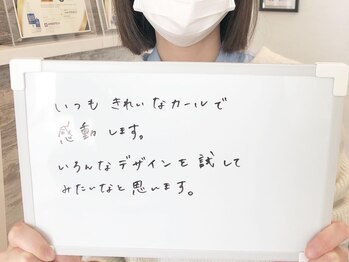 いつも きれいなカールで
感動します。
いろんなデザインを試して
みたいなと思います。